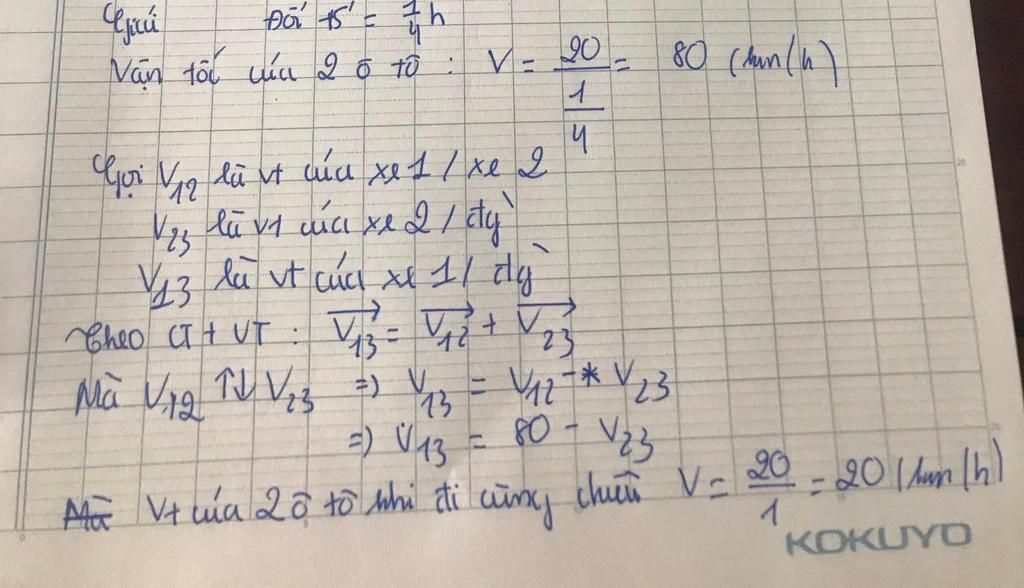 Giải Đổi 15' = 1/4 h
Vận tốc của 2 ô tô : V = 20/(1/4) = 80 (km/h)
Gọi V₁₂ là vt của xe 1 / xe 2
V₂₃ là vt của xe 2 / đg`
V₁₃ là vt của xe 1 / đg`
Theo CT + VT : V₁₃→ = V₁₂→ + V₂₃→
Mà V₁₂ ↑↓ V₂₃ => V₁₃ = V₁₂ - * V₂₃
=> V₁₃ = 80 - V₂₃
Mà Vt của 2 ô tô khi đi cùng chiều V = 20/1 = 20 (km/h)
KOKUYO